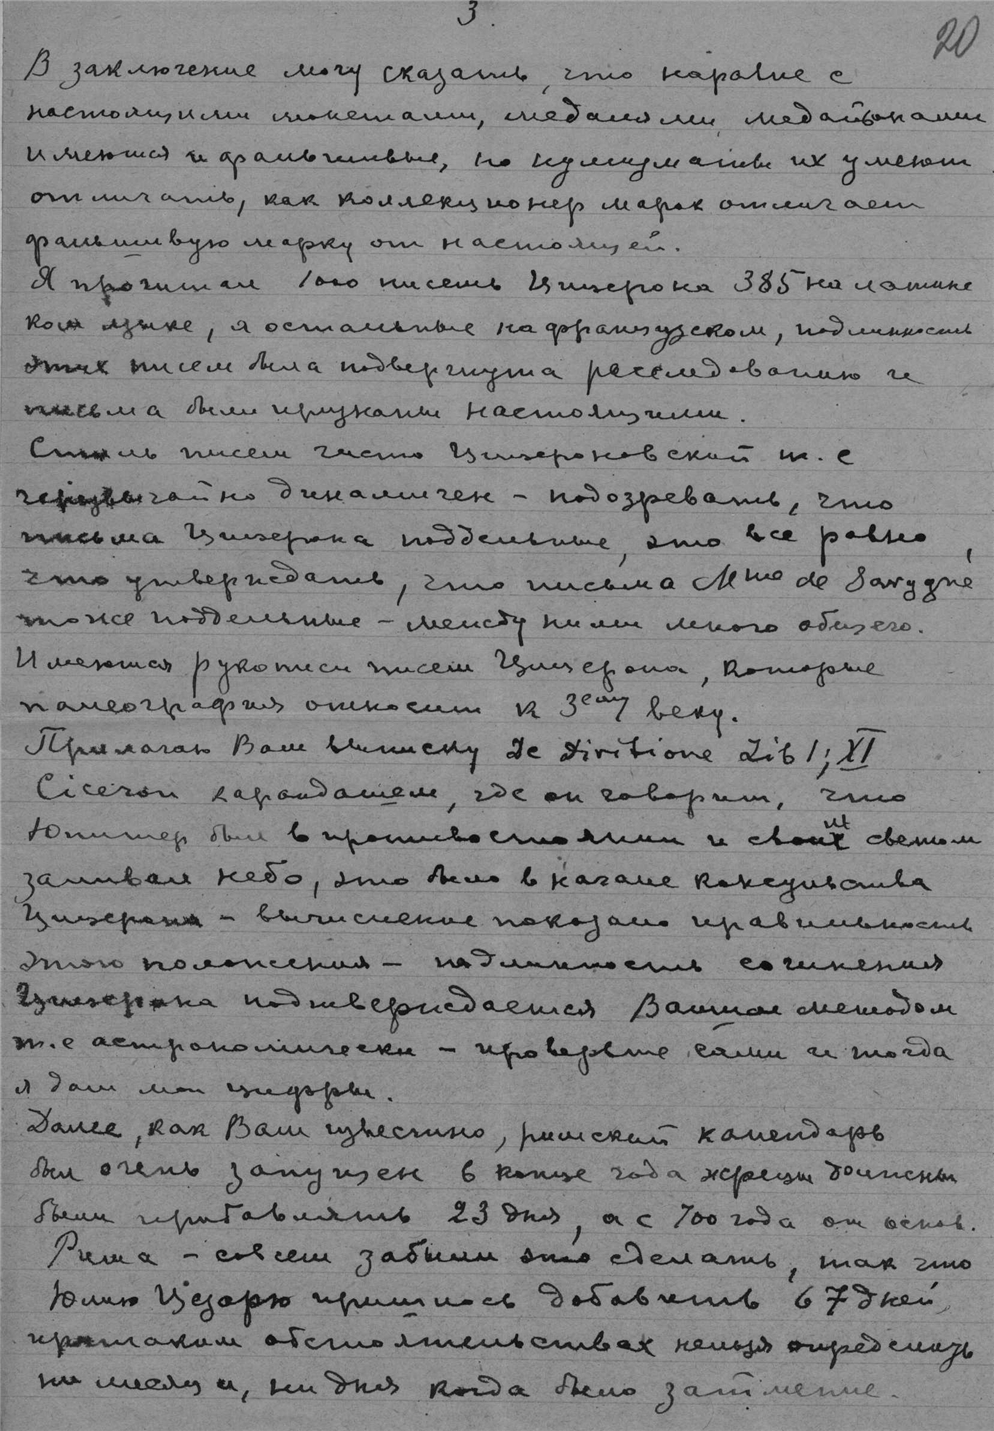 3.
20
В заключение могу сказать, что наравне с
настоящими монетами, медалями, медальонами
имеются и фальшивые, но нумизматы их умеют
отличать, как коллекционер марок отличает
фальшивую марку от настоящей.
Я прочитал 1000 писем Цицерона 385 на латинс
ком языке, а остальные на французском, подлинность
этих писем была подвергнута расследованию и
письма были признаны настоящими.
Стиль писем чисто Цицероновский т.е
чрезвычайно динамичен – подозревать, что
письма Цицерона поддельные, это все равно,
что утверждать, что письма Mme de Savygne
тоже поддельные – между ними много общего.
Имеются рукописи писем Цицерона, которые
палеография относит к 3ему веку.
Прилагаю Вам выписку De Divitione Lib I; XI
Ciceron карандашем, где он говорит, что
Юпитер был в противостоянии и своим светом
заливал небо, это было в начале консульства
Цицерона – вычисление показало правильность
этого положения – подлинность сочинения
Цицерона подтверждается Вашим методом
т.е астрономически – проверьте сами и тогда
я дам мои цифры.
Далее, как Вам известно, римский календарь
был очень запущен в конце года жрецы должны
были прибавлять 23 дня, а с 700 года от основ.
Рима – совсем забыли это сделать, так что
Юлию Цезарю пришлось добавить 67 дней
при таком обстоятельствах нельзя определить
ни месяца, ни дня когда было затмение.